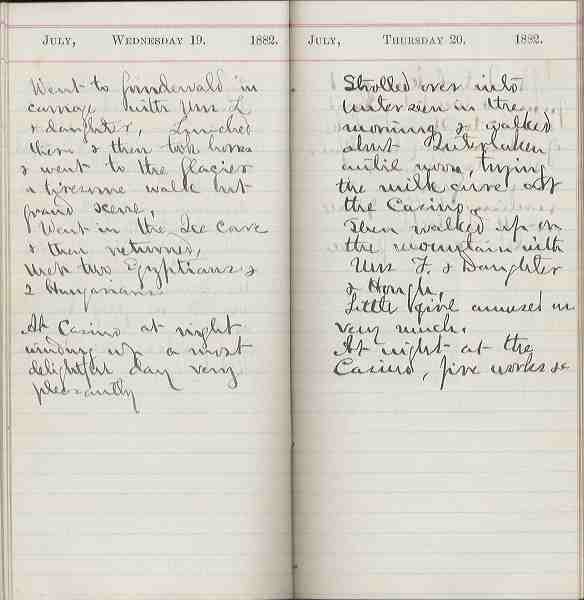 JULY, WEDNESDAY 19. 1882.
Went to Grindelwald in
carriage with Mrs L
& daughter, Lunched
there & then took horses
& went to the glacier
a tiresome walk but
grand scene,
Went in the Ice Cave
& then returned,
Met two Egyptians &
2 Hungarians
At Casino at night
winding up a most
delightful day very
pleasantly
JULY, THURSDAY 20. 1882.
Strolled over into
Unterseen in the
morning & walked
about Interlaken
until noon, trying
the milk cure at
the Casino,
Then walked up on
the mountain with
Mrs F. & Daughter
& Hough,
Little girl amused me
very much.
At night at the
Casino, fire works &c